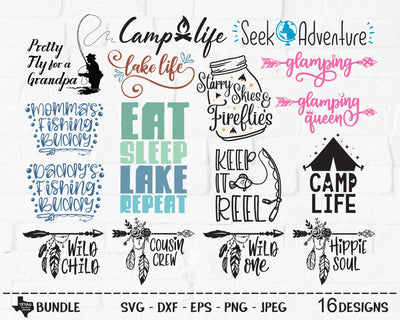 Pretty
Fly for a
Grandpa
Camp life
Seek Adventure
lake life
Starry Skies &
Fireflies
glamping
glamping
queen
Momma's
Fishing
Buddy
EAT
SLEEP
LAKE
REPEAT
Daddy's
Fishing
Buddy
KEEP
IT
REEL
CAMP
LIFE
WILD
CHILD
COUSIN
CREW
WILD
ONE
HIPPIE
SOUL
BUNDLE
SVG - DXF - EPS - PNG - JPEG
16 DESIGNS